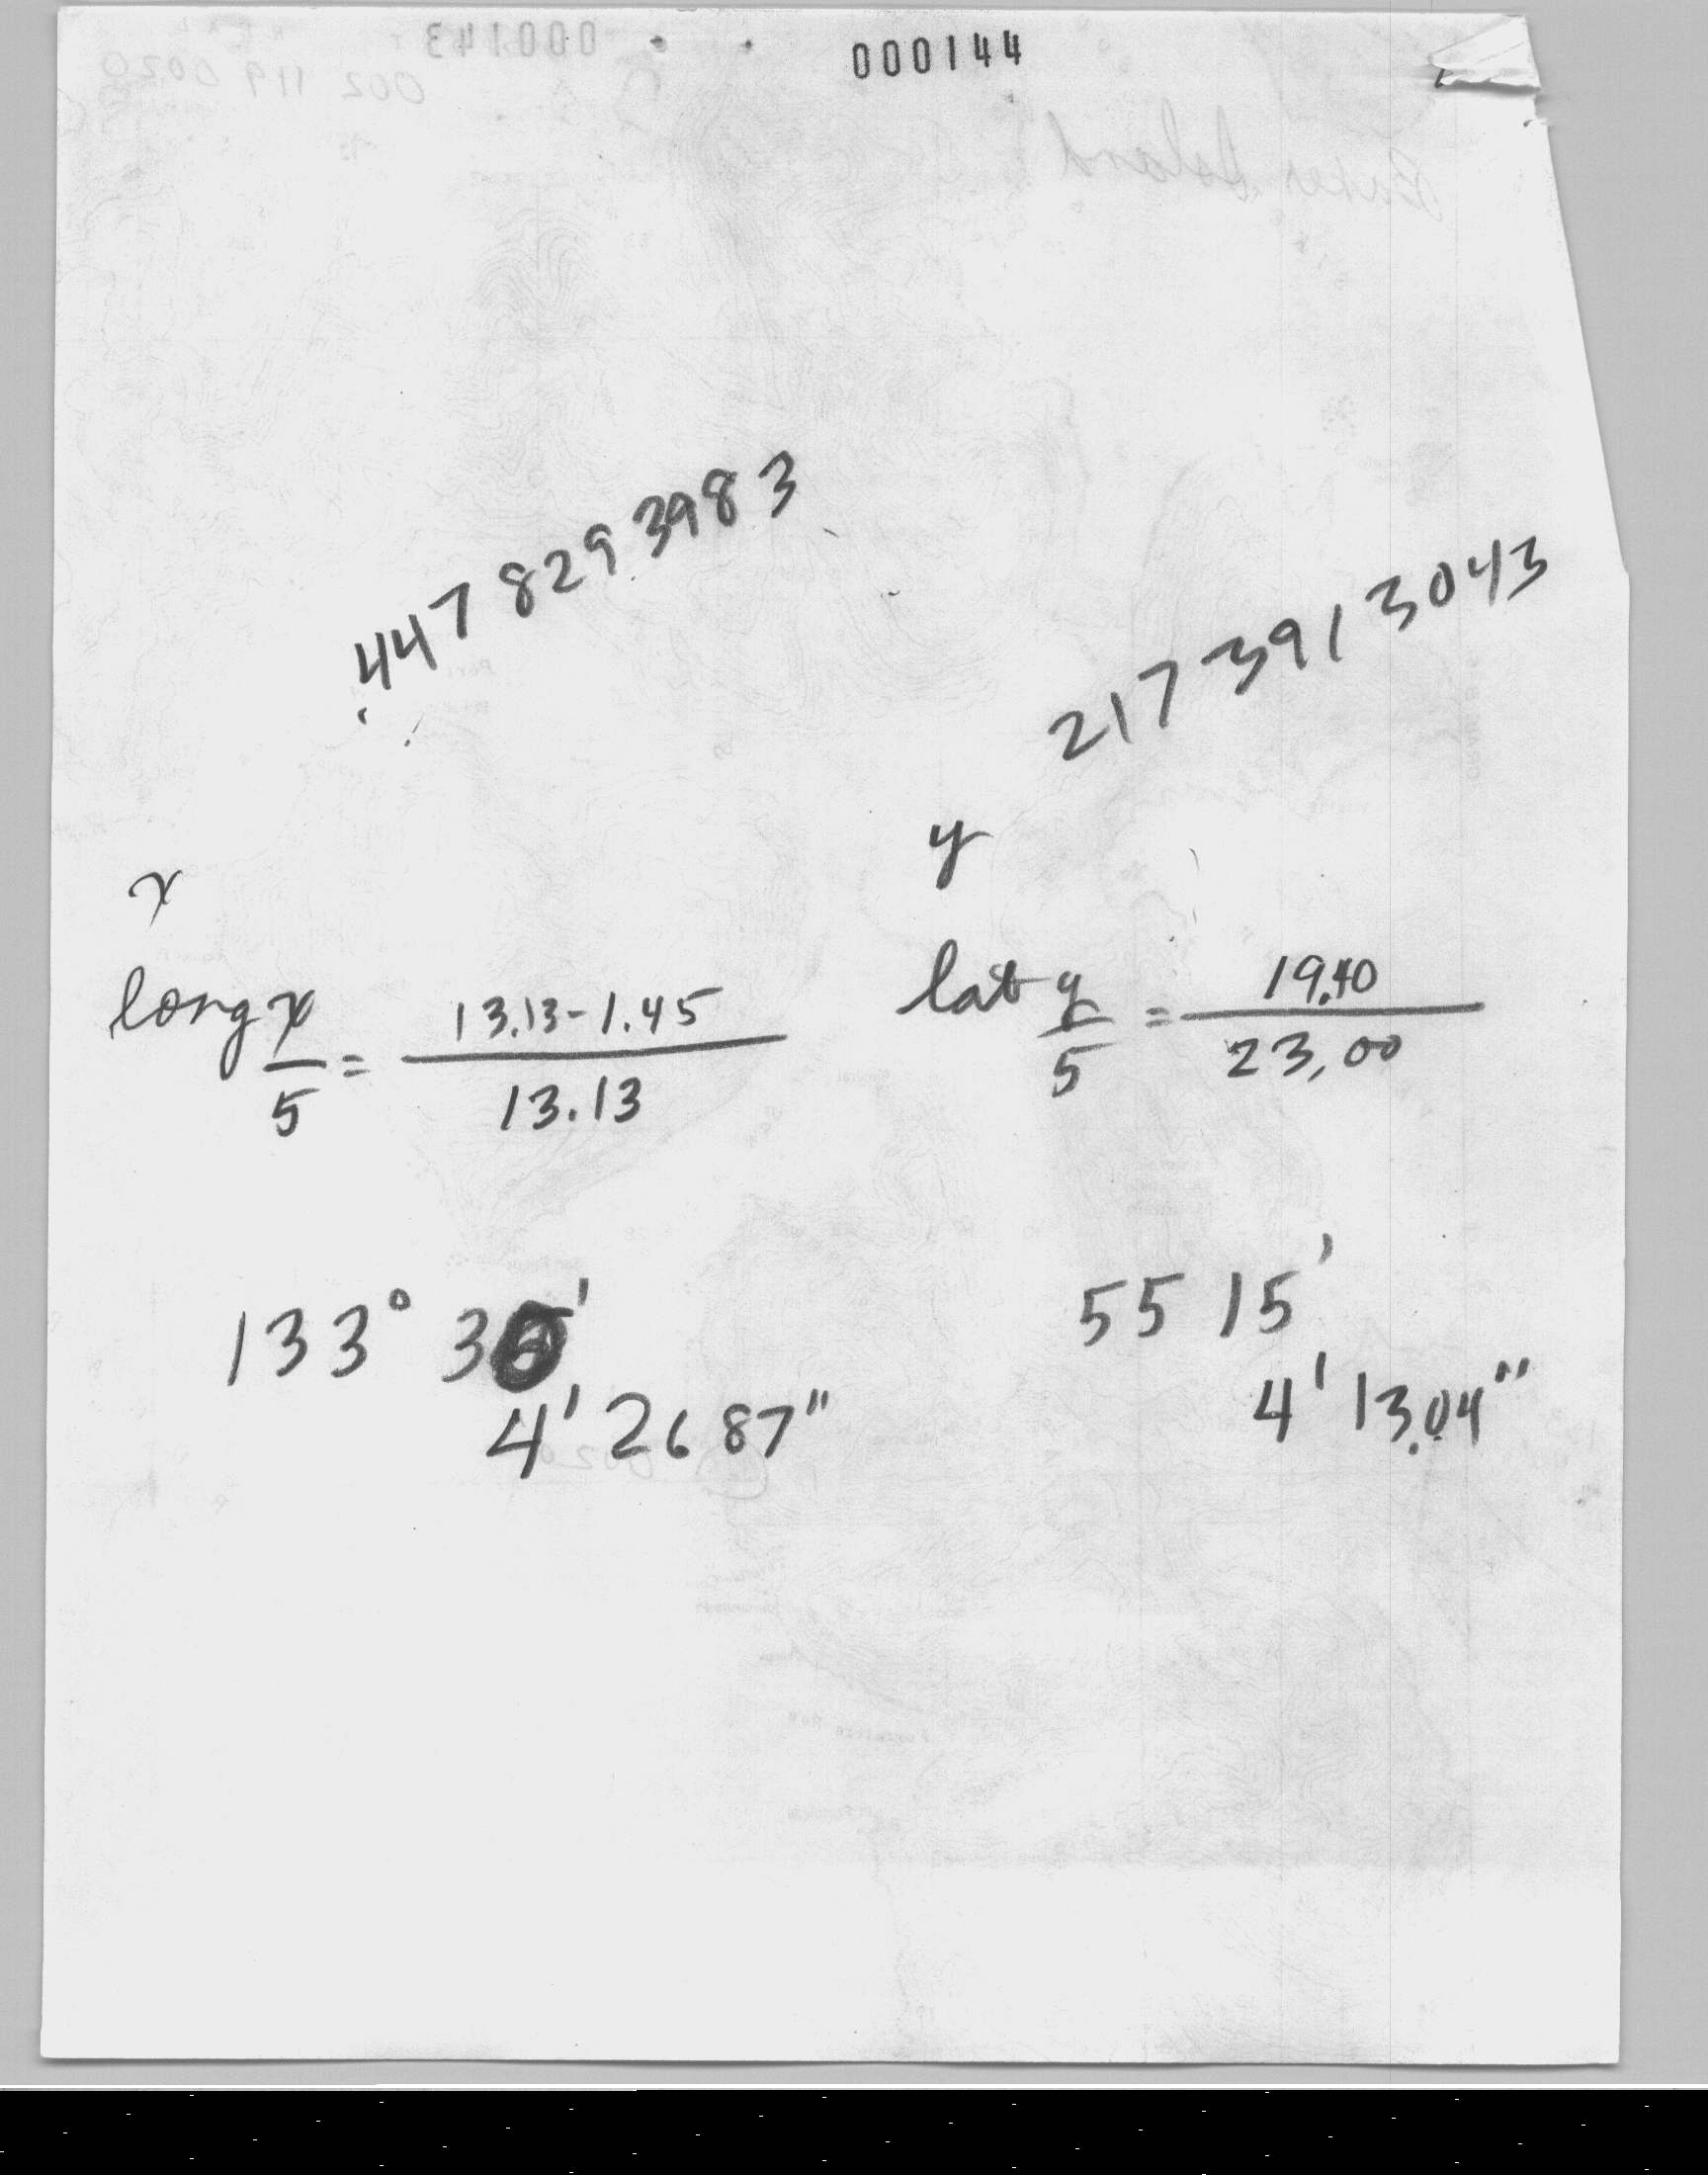 000144
.4478293983
2173913043
x
y
long x/5 = 13.13-1.45/13.13
lat y/5 = 19.40/23.00
133° 30'
4' 26 87"
55 15'
4' 13.04"